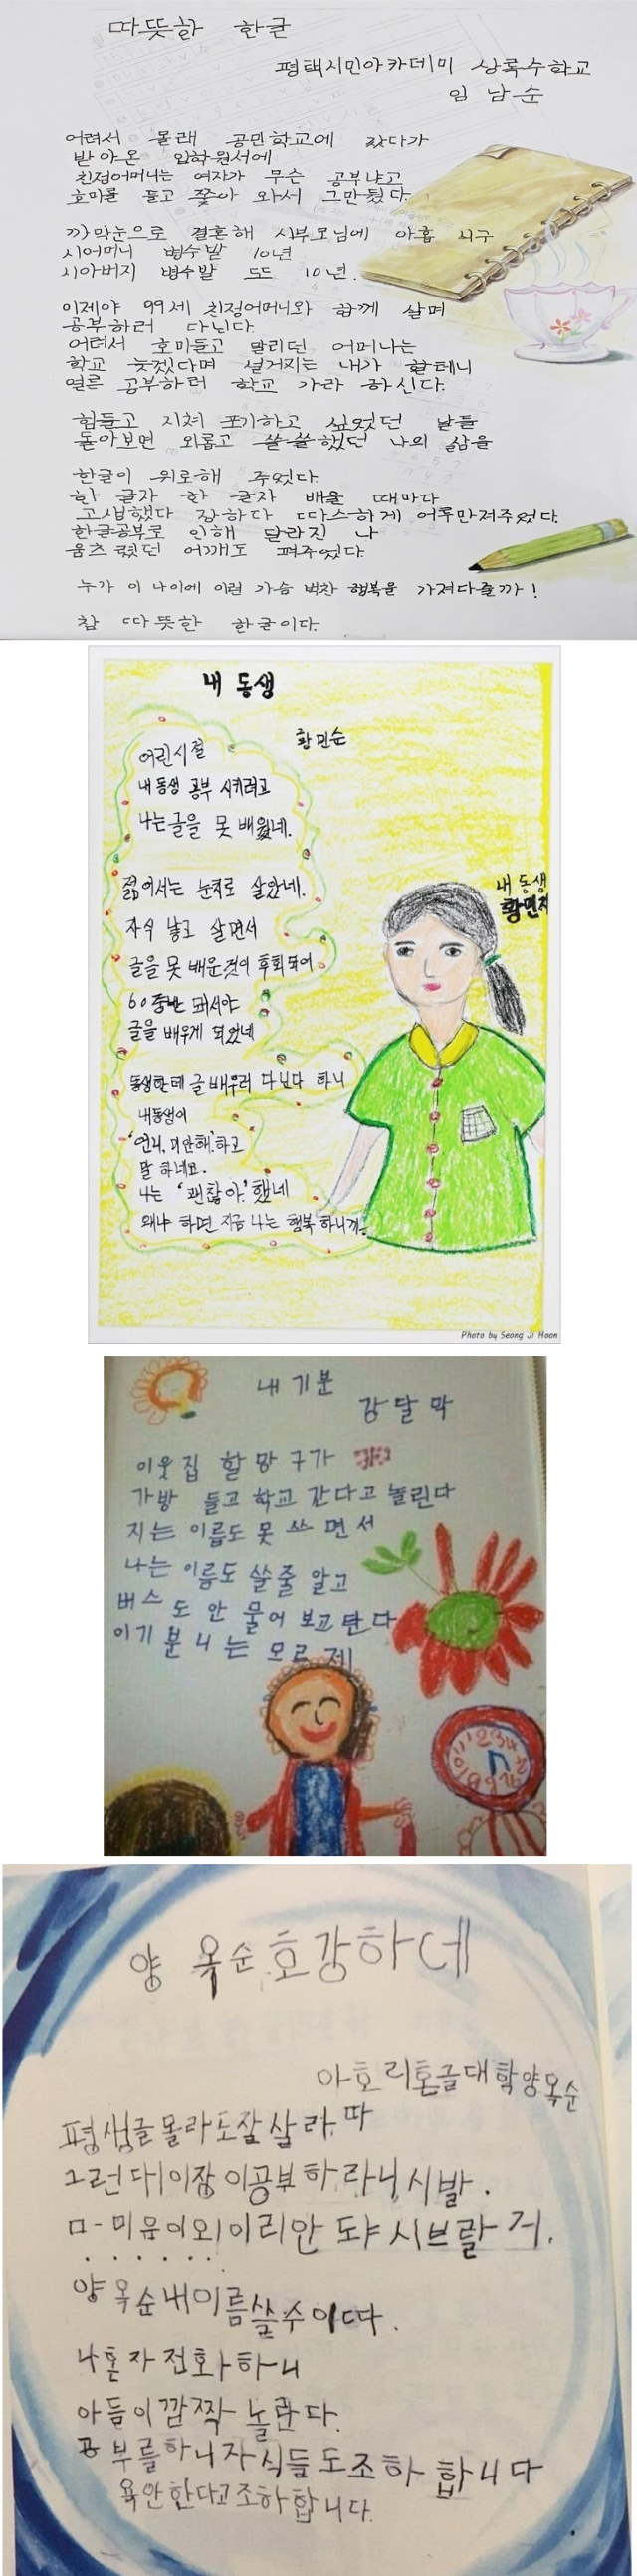 따뜻한 한글
평택시민아카데미 상록수학교
임 남순
어려서 몰래 공민학교에 갔다가
받아온 입학원서에
친정어머니는 여자가 무슨 공부냐고
호미를 들고 쫓아 와서 그만뒀다.
까막눈으로 결혼해 시부모님에 아홉 식구
시어머니 병수발 10년
시아버지 병수발 또 10년.
이제야 99세 친정어머니와 함께 살며
공부하러 다닌다.
어려서 호미들고 말리던 어머니는
학교 늦겠다며 설거지는 내가 할테니
얼른 공부하러 학교 가라 하신다.
힘들고 지쳐 포기하고 싶었던 날들
돌아보면 외롭고 쓸쓸했던 나의 삶을
한글이 위로해 주었다.
한 글자 한 글자 배울 때마다
고생했다 장하다 따스하게 어루만져주었다.
한글공부로 인해 달라진 나
움츠렸던 어깨도 펴주었다.
누가 이 나이에 이런 가슴 벅찬 행복을 가져다줄까!
참 따뜻한 한글이다.
내 동생
황민순
어린시절
내동생 공부 시키려고
나는글을 못 배웠네.
젊어서는 눈치로 살았네.
자식 낳고 살면서
글을 못 배운것이 후회되어
60중반 돼서야
글을 배우게 되었네
동생한테 글배우러 다닌다 하니
내동생이
'언니, 미안해'하고
말 하네요.
나는 '괜찮아'했네
왜냐 하면 지금 나는 행복 하니까.
내 동생
황민자
Photo by Seong Ji Hoon
내 기분
강 달 막
이웃집 할망구가
가방 들고 학교 간다고 놀린다
지는 이름도 못 쓰면서
나는 이름도 쓸줄 알고
버스도 안 물어 보고 탄다
이기분 니는 모르제
양 옥순호강하네
아호리혼글대학양옥순
평생글몰라도잘살라따
그런대이장이공부하라니,시발.
ㅁ-미유이외이리안 도냐 시브랄거.
양옥순내이름쓸수이따.
나혼자전화하니
아듬이깜짝놀란다.
공부를하니자식들도조하합니다
욕안한다고조하합니다.